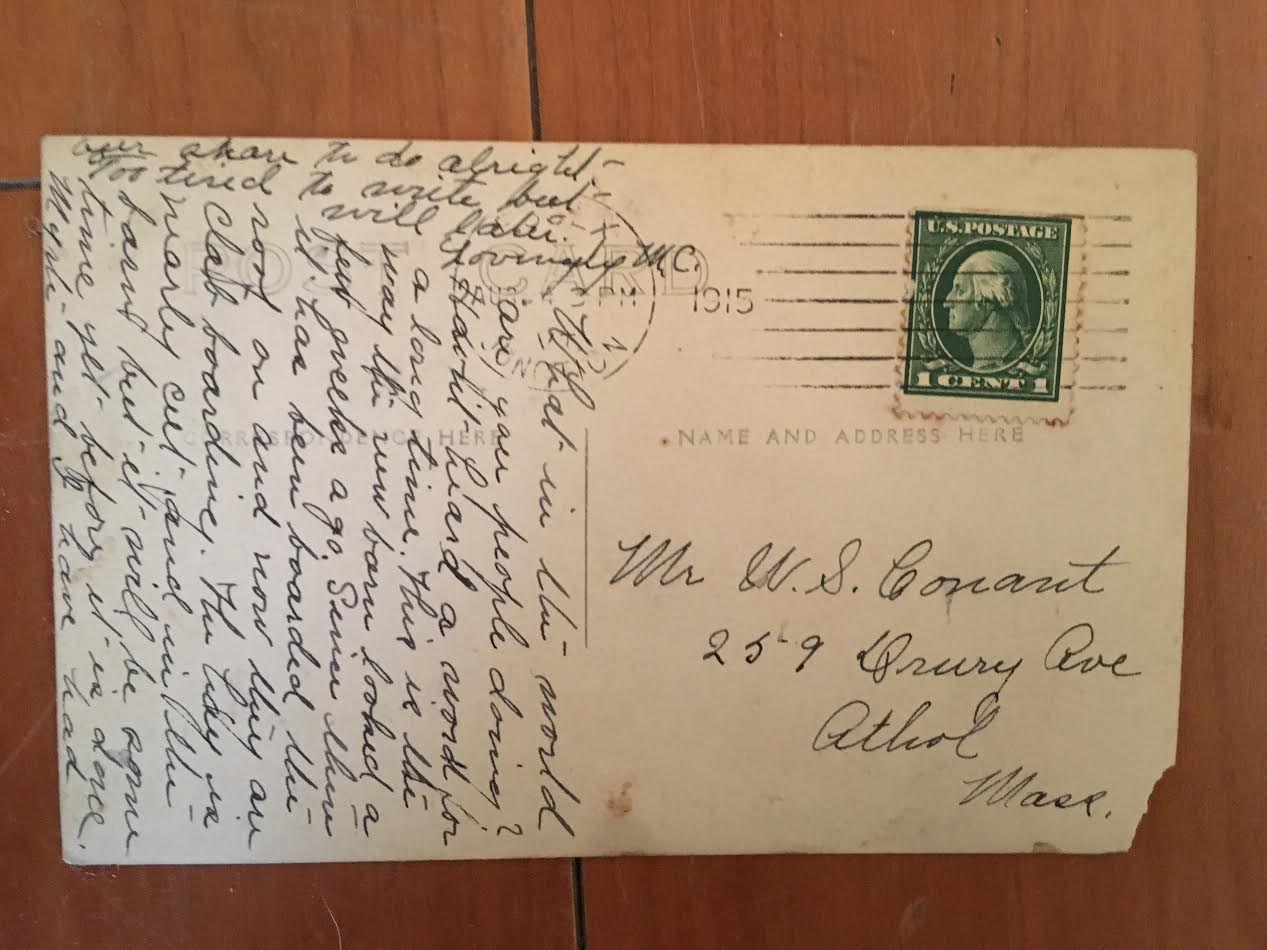 POST CARD
CORRESPONDENCE HERE
What in the world
are you people doing?
Havn't heard a word for
a long time. This is the
way the new barn looked a
few weeks ago. Since then
it has been boarded the
roof on and now they are
Clab boarding. The hay is
nearly cut and in the
barn but it will be some
time yet before it is done.
and I have had
our share to do alright-
Too tired to write but-
will later.
Lovingly M.C.
PM
1915
U.S. POSTAGE
1 CENT 1
NAME AND ADDRESS HERE
Mr W. S. Conant
259 Drury Ave
Athol
Mass.